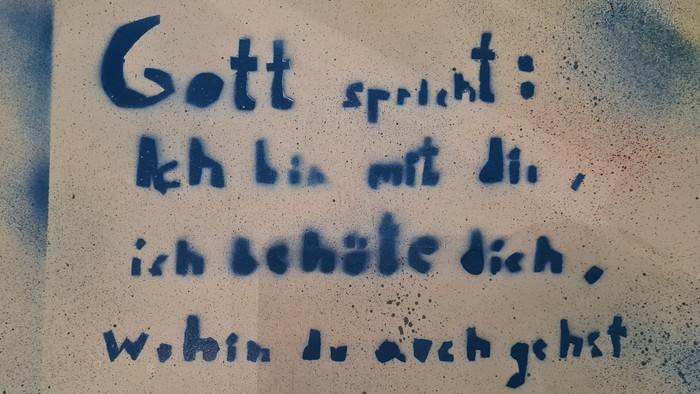 Gott spricht:
Ich bin mit dir,
ich behüte dich,
wohin du auch gehst